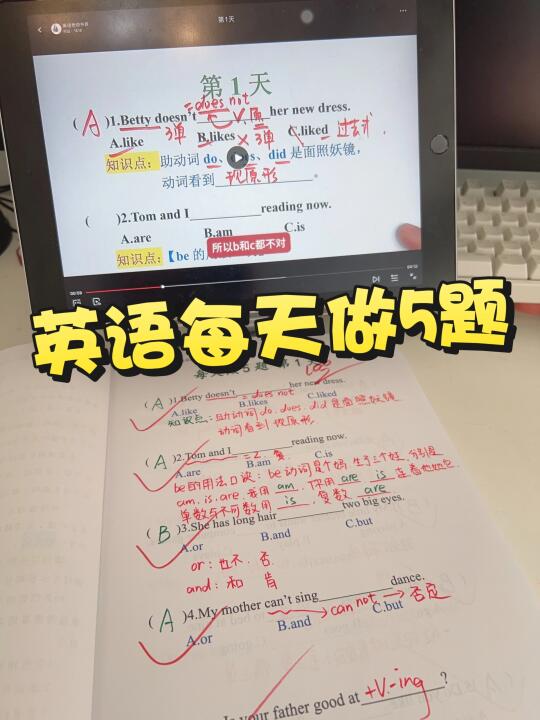 第1天
第 1 天
=does not
( A )1.Betty doesn't________her new dress.
V.原
A.like 三单 B.likes × 三单 C.liked 过去式.
知识点: 助动词 do、does、did 是面照妖镜,
动词看到 现原形 。
( )2.Tom and I________reading now.
A.are B.am C.is
知识点: 【be 的
所以b和c都不对
英语每天做5题
每天做5题 第1天
( A )1.Betty doesn't =does not her new dress.
A.like B.likes C.liked
知识点: 助动词do. does. did 是面照妖镜
动词看到 现原形
( A )2.Tom and I________reading now.
=2.复.
A.are B.am C.is
be的用法口诀: be动词是个妈,生了三个娃,分别是
am. is. are. 我用 am, 你用 are is 连着他她它
单数与不可数用 is , 复数 are
( B )3.She has long hair________two big eyes.
A.or B.and C.but
or: 也不. 否
and: 和 肯
( A )4.My mother can't sing________dance.
can not → 否定
A.or B.and C.but
Is your father good at +V.-ing ?